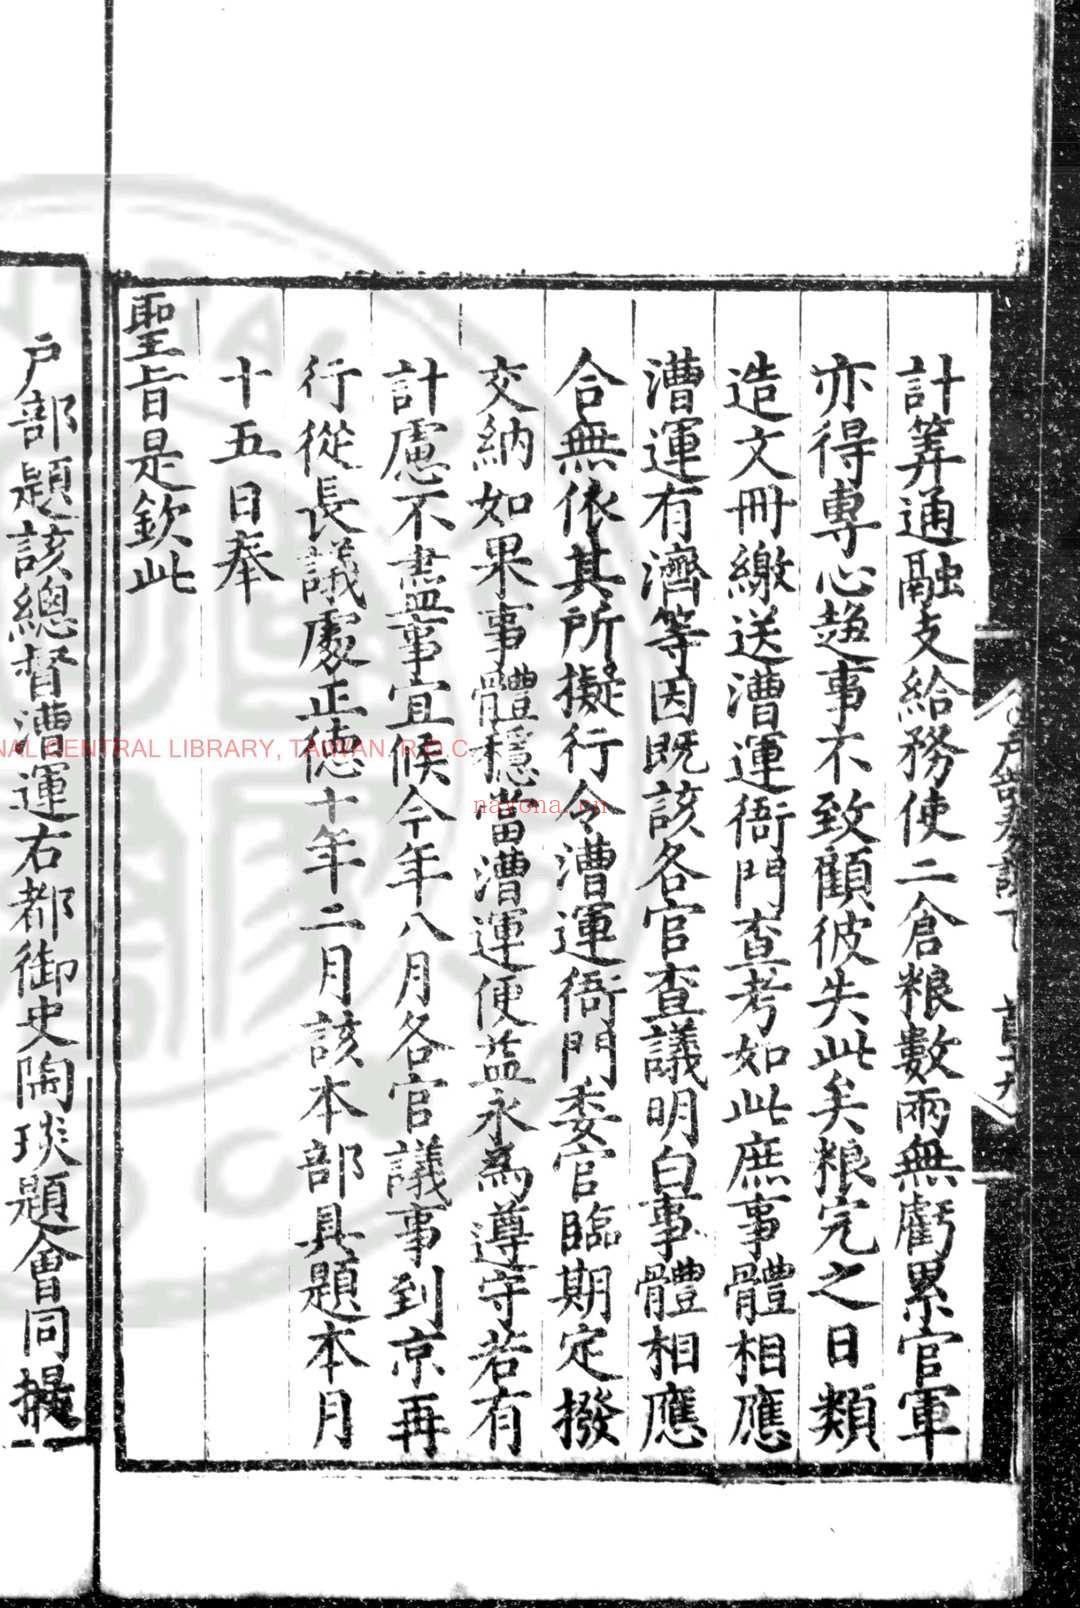 計筭通融支給務使二倉粮數兩無虧累官軍
亦得專心趨事不致顧彼失此矣粮完之日類
造文冊繳送漕運衙門查考如此庶事體相應
漕運有濟等因既該各官查議明白事體相應
合無依其所擬行令漕運衙門委官臨期定撥
交納如果事體穩當漕運便益永爲遵守若有
計慮不盡事宜候今年八月各官議事到京再
行從長議處正德十年二月該本部具題本月
十五日奉
聖旨是欽此
戶部題該總督漕運右都御史陶琰題會同提
NAL CENTRAL LIBRARY, TAIWAN, R.O.C
nayona.cn